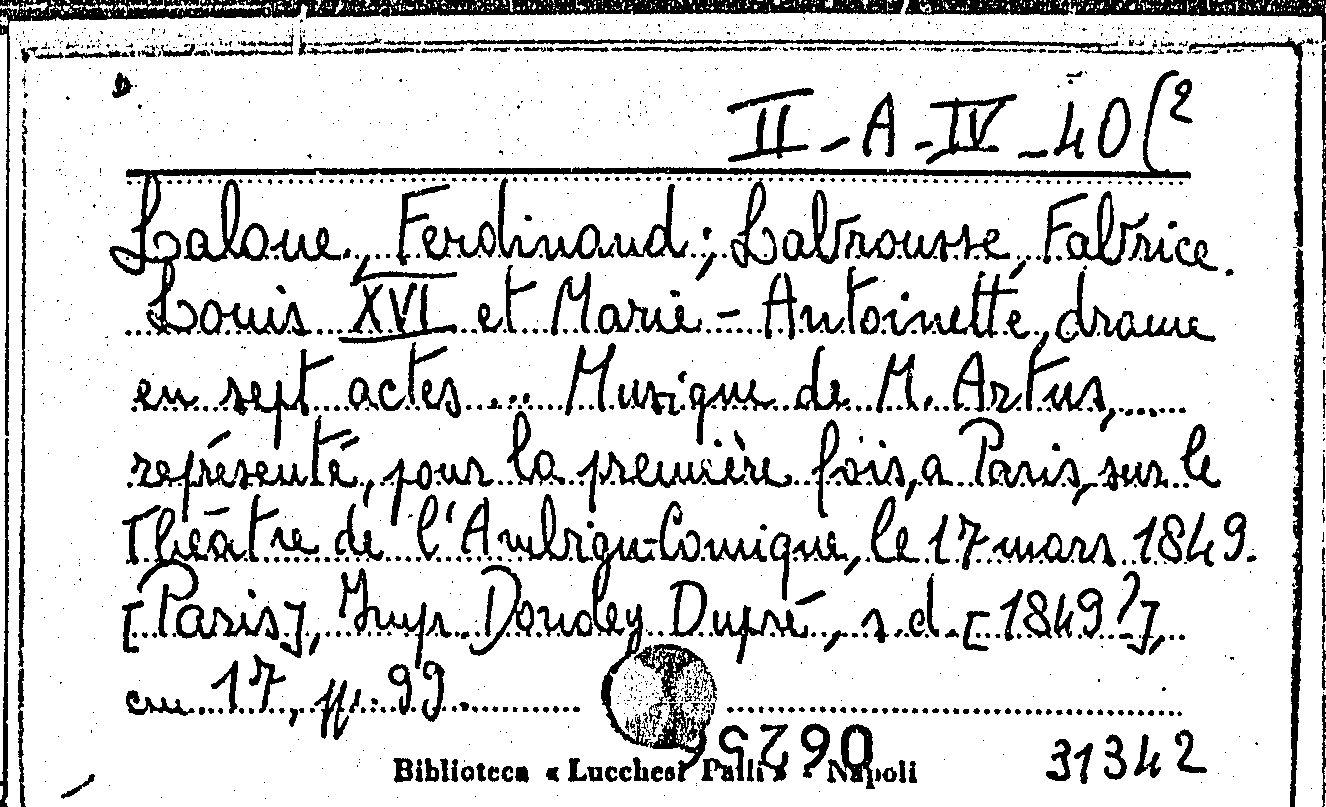 II-A-IV-40(2
Laloue, Ferdinand; Labrousse, Fabrice.
Louis XVI et Marie-Antoinette, drame
en sept actes... Musique de M. Artus,...
représenté, pour la première fois, a Paris, sur le
Théâtre de l'Ambigu-Comique, le 17 mars 1849.
[Paris], Imp. Dondey Dupré, s.d. [1849?],
cm. 17, pp. 99.
Biblioteca « Lucchesi Palli » - Napoli
31342